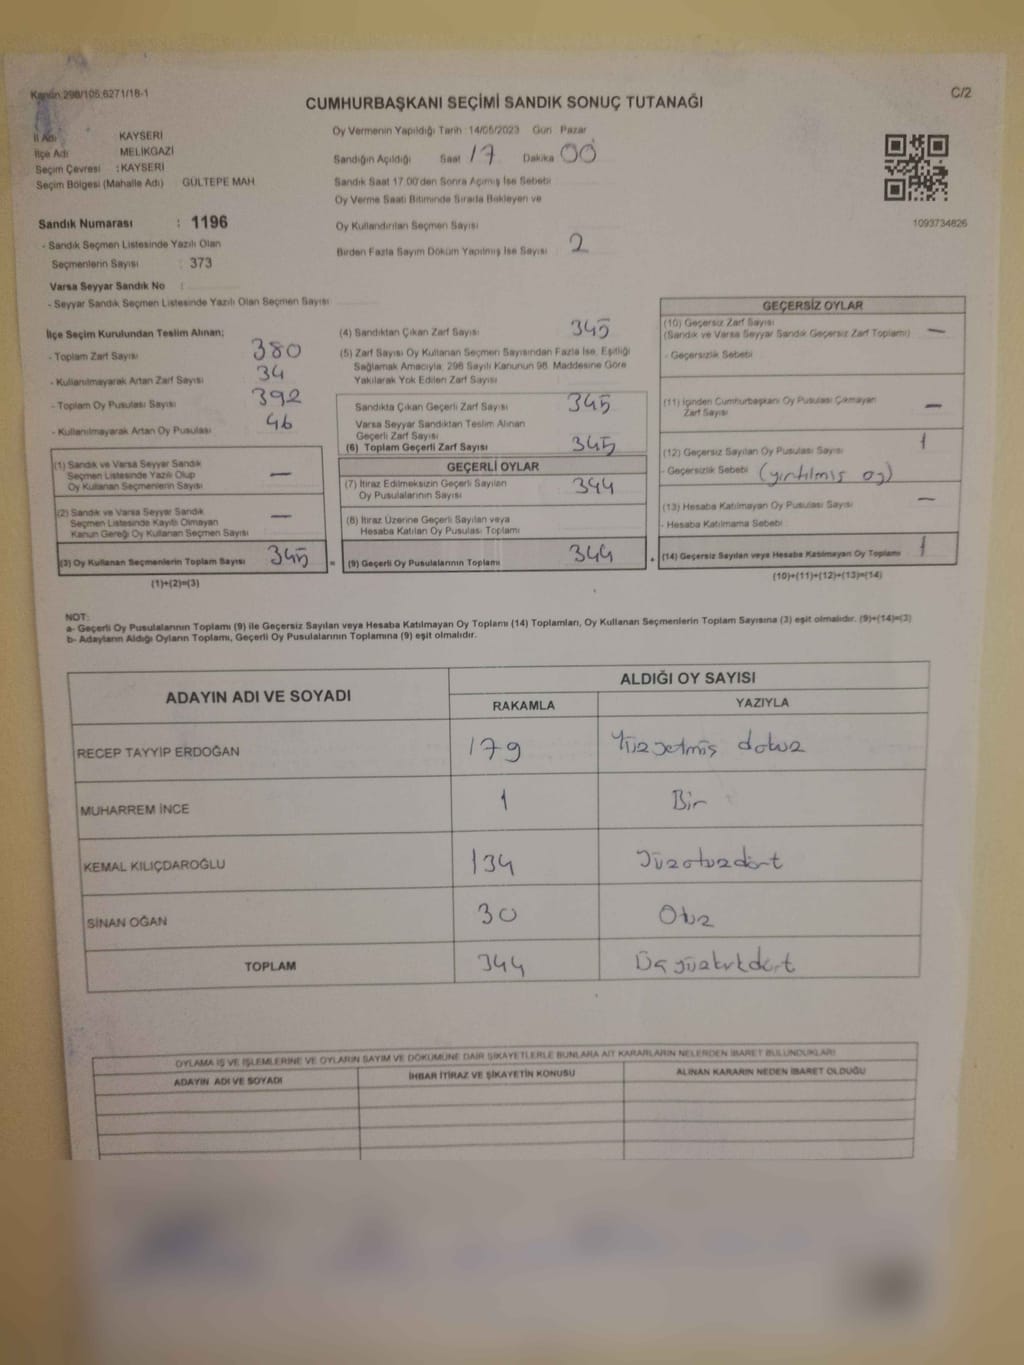 Kanun:298/105,6271/18-1
C/2
CUMHURBAŞKANI SEÇİMİ SANDIK SONUÇ TUTANAĞI
İl Adı KAYSERİ
İlçe Adı MELİKGAZİ
Seçim Çevresi : KAYSERİ
Seçim Bölgesi (Mahalle Adı) GÜLTEPE MAH
Oy Vermenin Yapıldığı Tarih : 14/05/2023 Gün : Pazar
Sandığın Açıldığı Saat 17 Dakika 00
Sandık Saat 17.00'den Sonra Açımış İse Sebebi
Oy Verme Saati Bitiminde Sırada Bekleyen ve
Oy Kullandırılan Seçmen Sayısı
Birden Fazla Sayım Döküm Yapılmış İse Sayısı : 2
1093734826
Sandık Numarası : 1196
- Sandık Seçmen Listesinde Yazılı Olan
Seçmenlerin Sayısı : 373
Varsa Seyyar Sandık No :
- Seyyar Sandık Seçmen Listesinde Yazılı Olan Seçmen Sayısı
İlçe Seçim Kurulundan Teslim Alınan;
- Toplam Zarf Sayısı 380
- Kullanılmayarak Artan Zarf Sayısı 34
- Toplam Oy Pusulası Sayısı 392
- Kullanılmayarak Artan Oy Pusulası 46
(1) Sandık ve Varsa Seyyar Sandık
Seçmen Listesinde Yazılı Olup
Oy Kullanan Seçmenlerin Sayısı —
(2) Sandık ve Varsa Seyyar Sandık
Seçmen Listesinde Kayıtlı Olmayan
Kanun Gereği Oy Kullanan Seçmen Sayısı —
(3) Oy Kullanan Seçmenlerin Toplam Sayısı 345 =
(1)+(2)=(3)
(4) Sandıktan Çıkan Zarf Sayısı 345
(5) Zarf Sayısı Oy Kullanan Seçmen Sayısından Fazla İse, Eşitliği
Sağlamak Amacıyla; 298 Sayılı Kanunun 98. Maddesine Göre
Yakılarak Yok Edilen Zarf Sayısı
Sandıkta Çıkan Geçerli Zarf Sayısı 345
Varsa Seyyar Sandıktan Teslim Alınan
Geçerli Zarf Sayısı
(6) Toplam Geçerli Zarf Sayısı 345
GEÇERLİ OYLAR
(7) İtiraz Edilmeksizin Geçerli Sayılan
Oy Pusulalarının Sayısı 344
(8) İtiraz Üzerine Geçerli Sayılan veya
Hesaba Katılan Oy Pusulası Toplamı
(9) Geçerli Oy Pusulalarının Toplamı 344 +
GEÇERSİZ OYLAR
(10) Geçersiz Zarf Sayısı
(Sandık ve Varsa Seyyar Sandık Geçersiz Zarf Toplamı) —
- Geçersizlik Sebebi
(11) İçinden Cumhurbaşkanı Oy Pusulası Çıkmayan
Zarf Sayısı —
(12) Geçersiz Sayılan Oy Pusulası Sayısı 1
- Geçersizlik Sebebi (yırtılmış oy)
(13) Hesaba Katılmayan Oy Pusulası Sayısı —
- Hesaba Katılmama Sebebi
(14) Geçersiz Sayılan veya Hesaba Katılmayan Oy Toplamı 1
(10)+(11)+(12)+(13)=(14)
NOT:
a- Geçerli Oy Pusulalarının Toplamı (9) ile Geçersiz Sayılan veya Hesaba Katılmayan Oy Toplamı (14) Toplamları, Oy Kullanan Seçmenlerin Toplam Sayısına (3) eşit olmalıdır. (9)+(14)=(3)
b- Adayların Aldığı Oyların Toplamı, Geçerli Oy Pusulalarının Toplamına (9) eşit olmalıdır.
ADAYIN ADI VE SOYADI ALDIĞI OY SAYISI
RAKAMLA YAZIYLA
RECEP TAYYİP ERDOĞAN 179 Yüzyetmiş dokuz
MUHARREM İNCE 1 Bir
KEMAL KILIÇDAROĞLU 134 Yüzotuzdört
SİNAN OĞAN 30 Otuz
TOPLAM 344 Üçyüzkırkdört
OYLAMA İŞ VE İŞLEMLERİNE VE OYLARIN SAYIM VE DÖKÜMÜNE DAİR ŞİKAYETLERLE BUNLARA AİT KARARLARIN NELERDEN İBARET BULUNDUKLARI
ADAYIN ADI VE SOYADI İHBAR İTİRAZ VE ŞİKAYETİN KONUSU ALINAN KARARIN NEDEN İBARET OLDUĞU